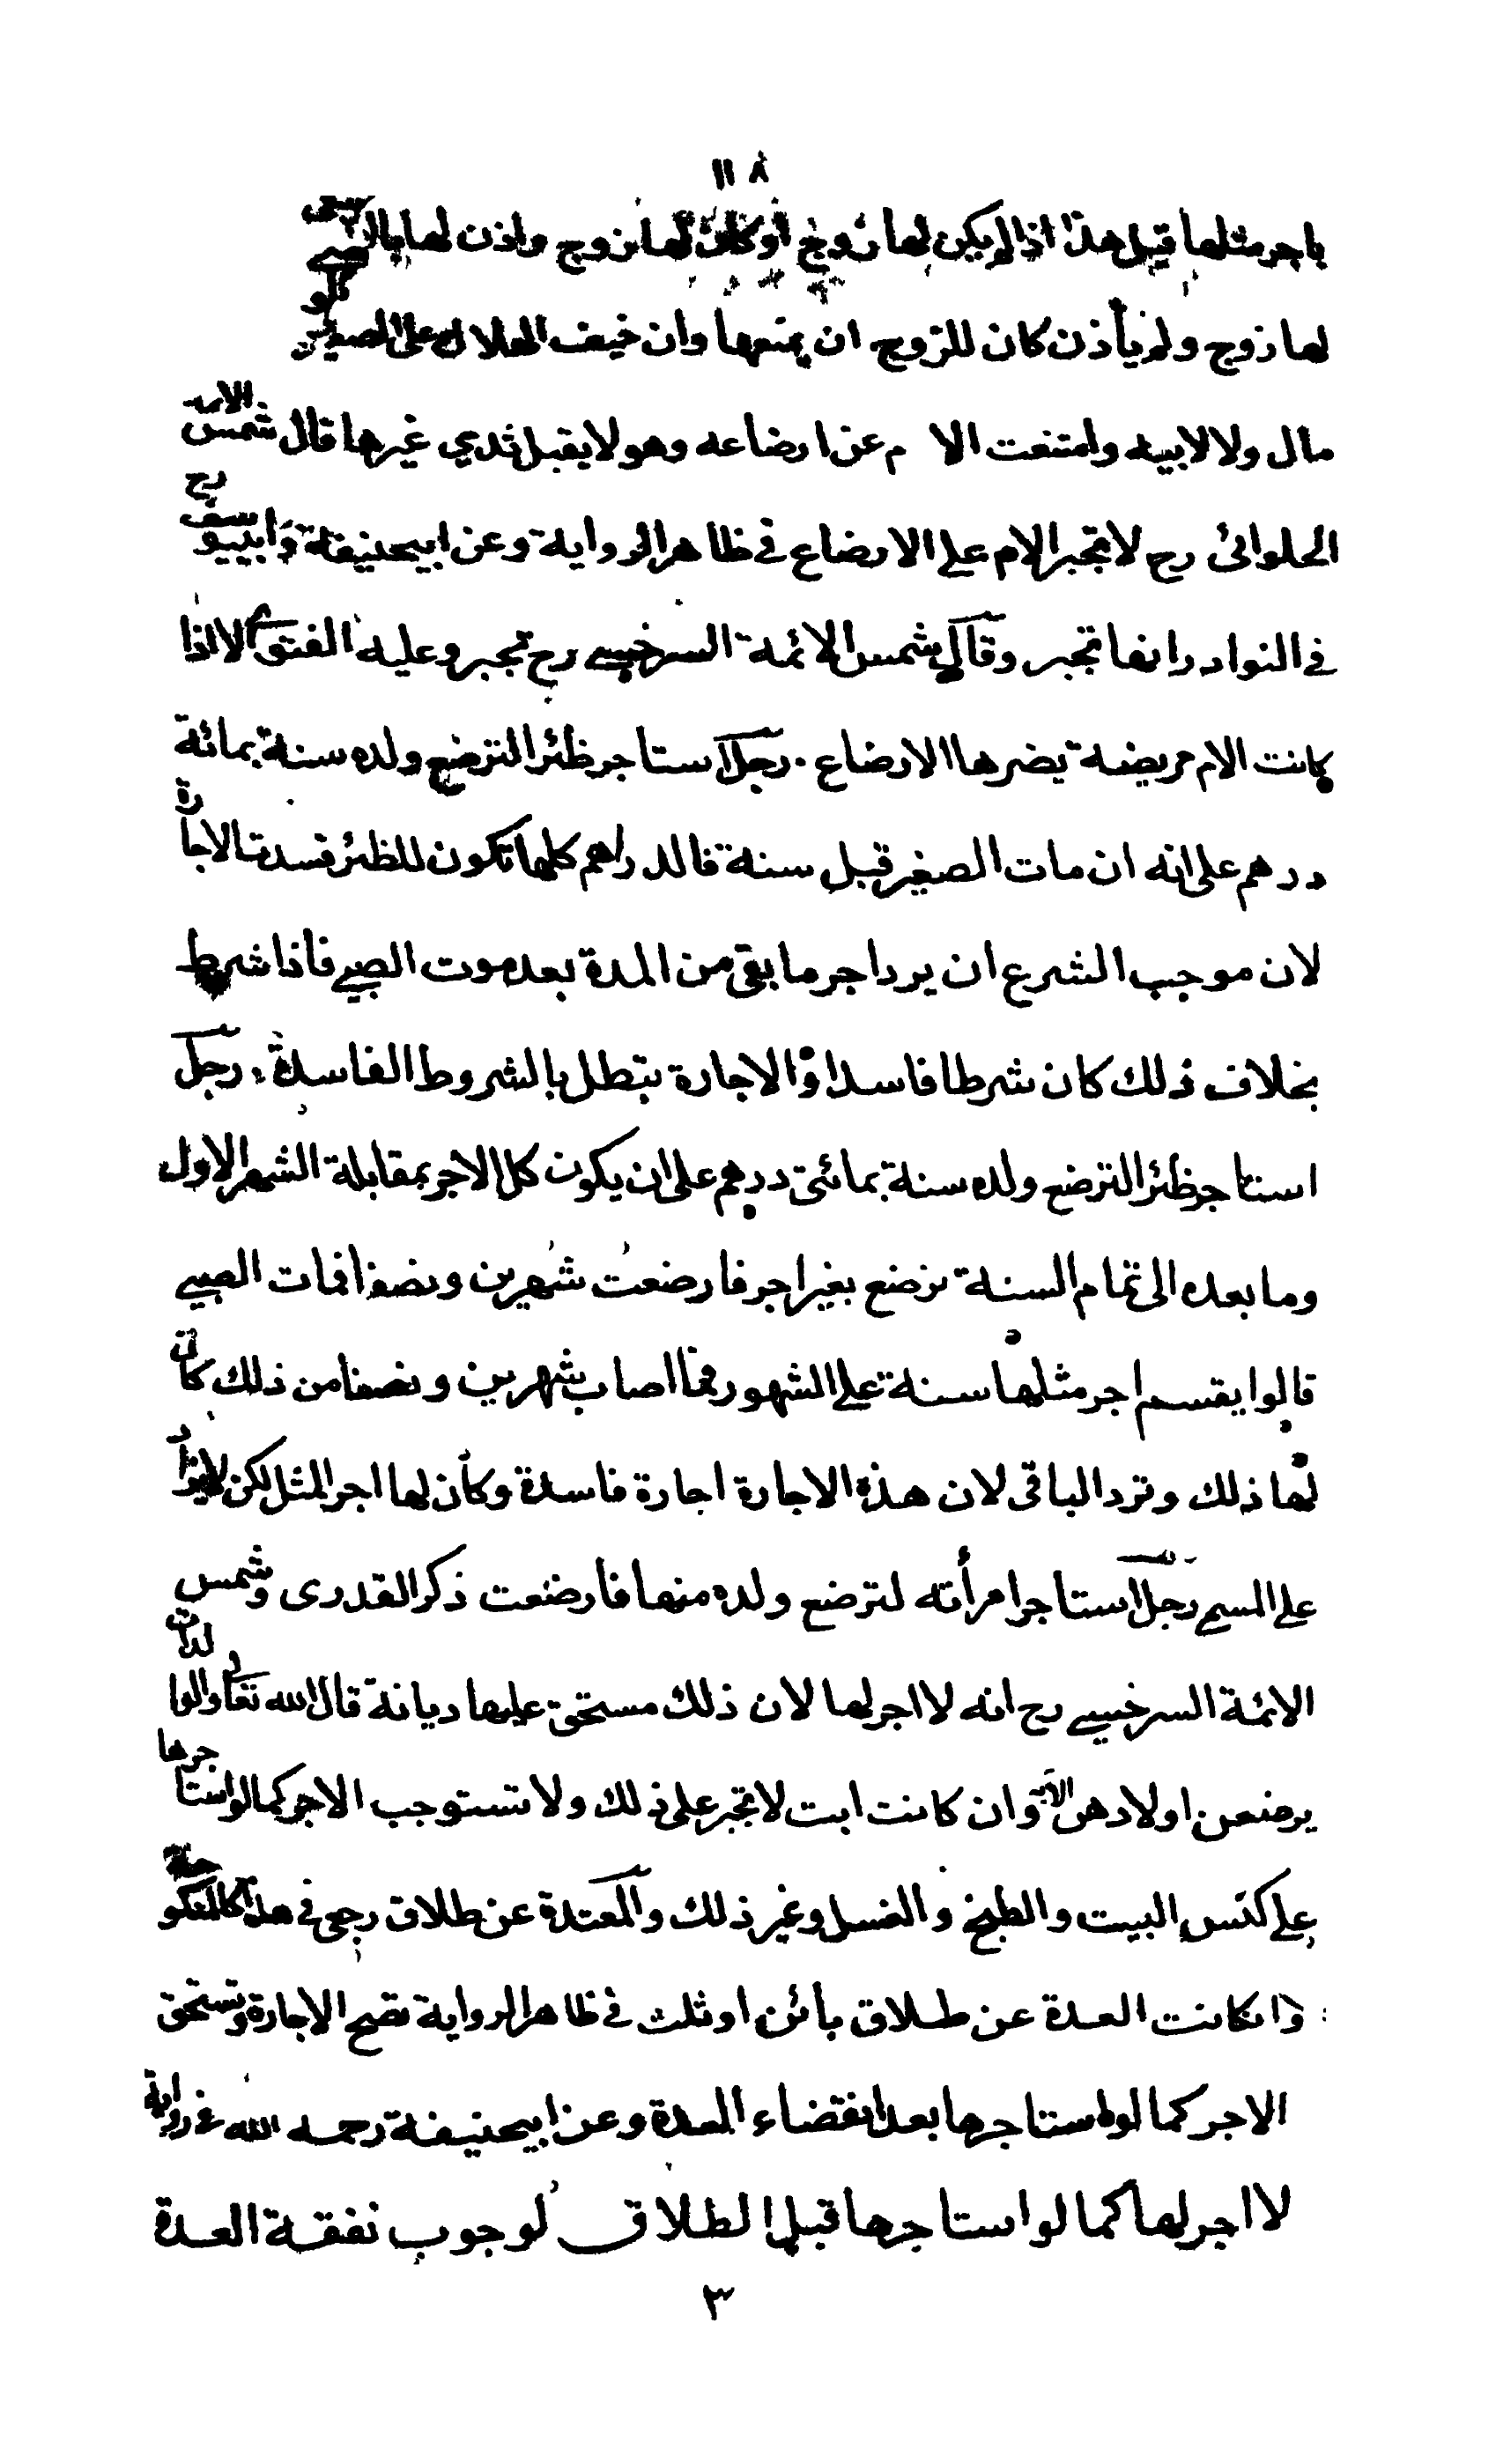 ١١٨
باجر مثلها قيل هذا اذا لم يكن لها زوج او كان لها زوج واذن لها
لها زوج ولم يأذن كان للزوج ان يمنعها وان خيف الهلاك على الصغير
مال ولا لابيه وامتنعت الام عن ارضاعه وهو لا يقبل ثدي غيرها قال شمس الايمة
الحلوائى رح لا تجبر الام على الارضاع في ظاهر الرواية وعن ابيحنيفة وابييوسف رح
في النوادر انها تجبر وقال شمس الائمة السرخسي رح تجبر وعليه الفتوى الا اذا
كانت الام مريضة يضرها الارضاع . رجل استاجر ظئرا لترضع ولده سنة بمائة
درهم على انه ان مات الصغير قبل سنة فالدراهم كلها تكون للظئر فسدت الاجارة
لان موجب الشرع ان يرد اجر ما بقى من المدة بعد موت الصبي فاذا شرط
بخلاف ذلك كان شرطا فاسدا والاجارة تبطل بالشروط الفاسدة . رجل
استاجر ظئرا لترضع ولده سنة بمائتى درهم على ان يكون كل الاجر بمقابلة الشهر الاول
وما بعده الى تمام السنة ترضع بغير اجر فارضعت شهرين ونصفا فمات الصبي
قالوا يقسم اجر مثلها سنة على الشهور فما اصاب شهرين ونصفا من ذلك كان
لها ذلك وترد الباقى لان هذه الاجارة اجارة فاسدة وكان لها اجر المثل لكن لا يزاد
على المسمى رجل استاجر امرأته لترضع ولده منها فارضعت ذكر القدرى وشمس
الائمة السرخسي رح انه لا اجر لها لان ذلك مستحق عليها ديانة قال الله تعالى والوالدات
يرضعن اولادهن الآية وان كانت ابت لا تجبر على ذلك ولا تستوجب الاجر كما لو استاجرها
على كنس البيت والطبخ والغسل وغير ذلك والمعتدة عن طلاق رجعى في هذا كالمنكوحة
وانكانت العدة عن طلاق بائن او ثلث في ظاهر الرواية تصح الاجارة وتستحق
الاجر كما لو استاجرها بعد انقضاء العدة وعن ابيحنيفة رحمه الله في رواية
لا اجر لها كما لو استاجرها قبل الطلاق لوجوب نفقة العدة
٣